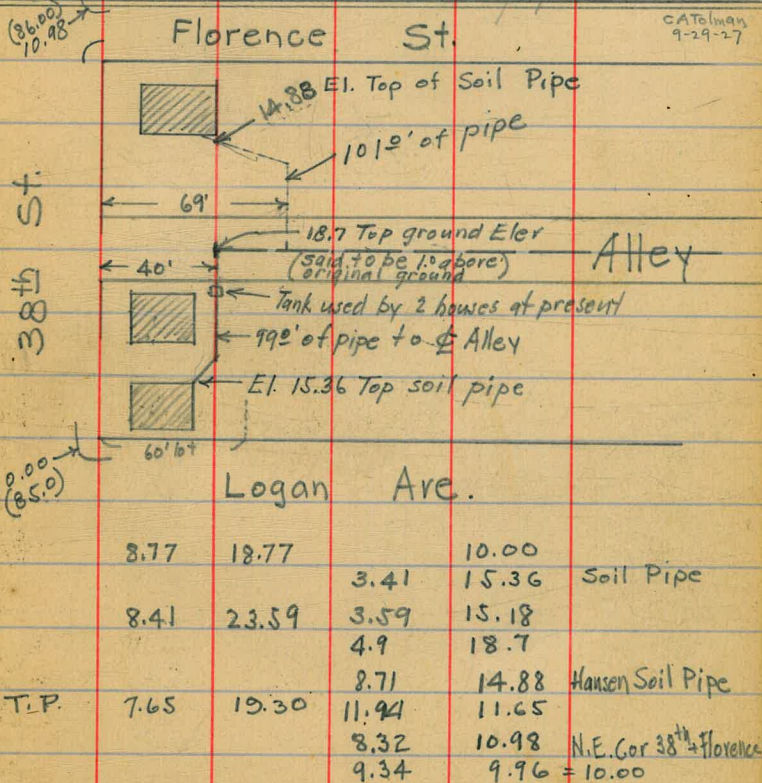 (86.00)
10.98
Florence St.
CATolman
9-29-27
14.88 El. Top of Soil Pipe
101º' of pipe
38th St.
69'
18.7 Top ground Elev
(said to be 1.º above)
original ground
Alley
40'
Tank used by 2 houses at present
99º' of pipe to ℄ Alley
El. 15.36 Top soil pipe
60' lot
0.00
(85.0)
Logan Ave.
8.77 18.77 10.00
3.41 15.36 Soil Pipe
8.41 23.59 3.59 15.18
4.9 18.7
8.71 14.88 Hansen Soil Pipe
T.P. 7.65 19.30 11.94 11.65
8.32 10.98 N.E. Cor 38th + Florence
9.34 9.96 = 10.00